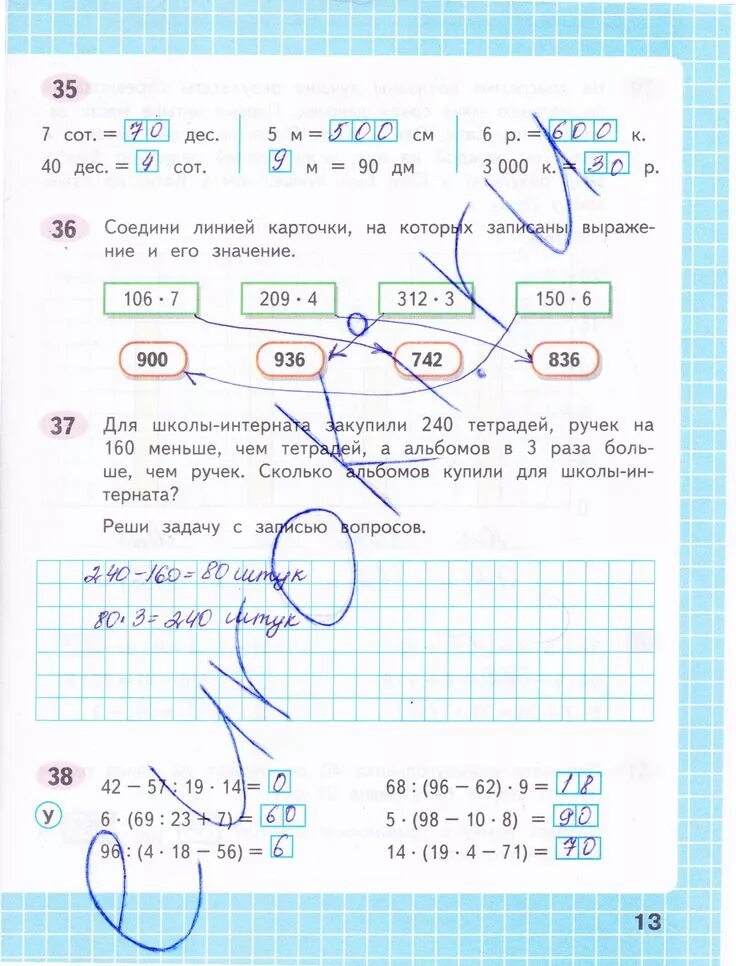 35
7 сот. = 70 дес. 5 м = 500 см 6 р. = 600 к.
40 дес. = 4 сот. 9 м = 90 дм 3 000 к. = 30 р.
36 Соедини линией карточки, на которых записаны выраже-
ние и его значение.
106 · 7 209 · 4 312 · 3 150 · 6
900 936 742 836
37 Для школы-интерната закупили 240 тетрадей, ручек на
160 меньше, чем тетрадей, а альбомов в 3 раза боль-
ше, чем ручек. Сколько альбомов купили для школы-ин-
терната?
Реши задачу с записью вопросов.
240-160=80 штук
80·3=240 штук
38
У
42 − 57 : 19 · 14 = 0 68 : (96 − 62) · 9 = 18
6 · (69 : 23 + 7) = 60 5 · (98 − 10 · 8) = 90
96 : (4 · 18 − 56) = 6 14 · (19 · 4 − 71) = 70
13